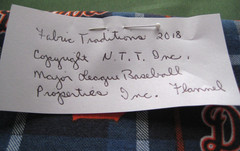 Fabric Traditions 2018
Copyright N.T.T. Inc.
Major League Baseball
Properties Inc. Flannel
D